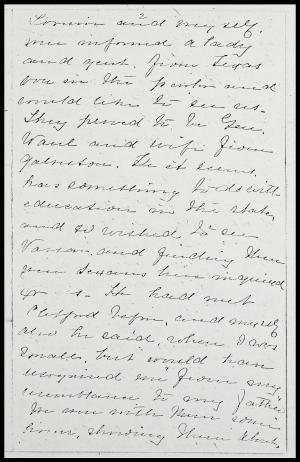 2
and myself.
were informed a lady
and gent. from Texas
was in the parlor and
would like to see us.
They proved to be Gen.
Waul and wife from
Galveston. He it seems
has something to do with
education in the state,
and so wished to see
Vassar, and finding there
were Texans here inquired
for us. He had met
Clifford before, and myself
also he said, when I was
small, but would have
recognised me "from my
resemblance to my father"
We were with them some
time, showing them about,